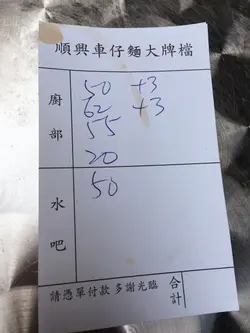 順興車仔麵大牌檔
廚部
50 +3
62 +3
55
20
水吧
50
請憑單付款 多謝光臨
合計